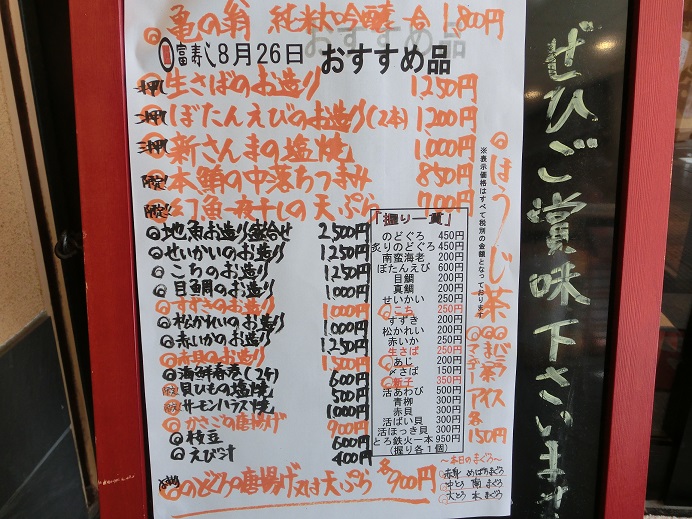 ◎亀の翁 純米大吟醸 一合 1,800円
富寿し8月26日 おすすめ品
押 生さばのお造り 1,250円
押 ぼたんえびのお造り(2本) 1,200円
押 新さんまの塩焼 1,000円
限定 本鮪の中落ちつまみ 850円
限定 幻魚一夜干しの天ぷら 700円
◎地魚お造り盛合せ 2,500円
◎せいかいのお造り 1,250円
◎こちのお造り 1,250円
◎目鯛のお造り 1,000円
◎すずきのお造り 1,000円
◎松かれいのお造り 1,000円
◎赤いかのお造り 1,250円
◎赤貝のお造り 1,500円
◎海鮮春巻(2本) 600円
限定 貝ひもの塩焼 500円
限定 サーモンハラス焼 1,000円
◎かさごの唐揚げ 900円
◎枝豆 600円
◎えび汁 400円
◎のどぐろの唐揚げ又は天ぷら 各900円
「握り一貫」
のどぐろ 450円
炙りのどぐろ 450円
南蛮海老 200円
ぼたんえび 600円
目鯛 200円
真鯛 200円
せいかい 250円
◎こち 250円
すずき 200円
松かれい 200円
赤いか 250円
生さば 250円
◎あじ 200円
〆さば 150円
◎新子 350円
活あわび 500円
青柳 300円
赤貝 300円
活ばい貝 300円
活ほっき貝 300円
とろ鉄火一本 950円
(握り各1個)
※表示価格はすべて税別の金額となっております
◎ほうじ茶
◎バニラ
◎まっ茶
◎マンゴー
アイス各150円
~本日のまぐろ~
赤身 めばちまぐろ
中とろ 南まぐろ
大とろ 本まぐろ
ぜひご賞味下さいませ